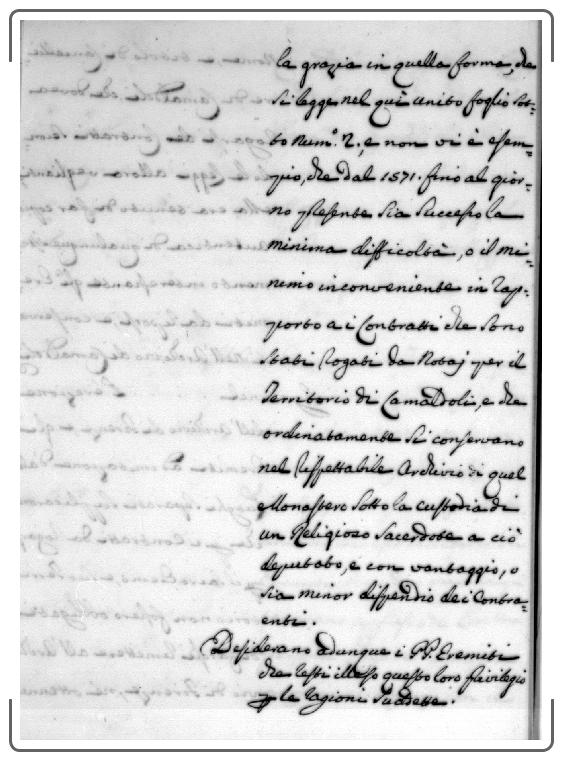 la grazia in quella forma, che
si legge nel quì unito foglio sot=
to Num.° 2., e non vi è esem=
pio, che dal 1571. fino al gior=
no presente sia successo la
minima difficoltà, o il mi=
nimo inconveniente in rap=
porto a i Contratti che sono
stati rogati da Notaj per il
Territorio di Camaldoli, e che
ordinatamente si conservano
nel rispettabile Archivio di quel
Monastero sotto la custodia di
un Religioso Sacerdote a ciò
deputato, e con vantaggio, o
sia minor dispendio dei Contra=
enti.
Desiderano adunque i PP. Eremiti
che resti illeso questo loro privilegio
p le ragioni sudette.